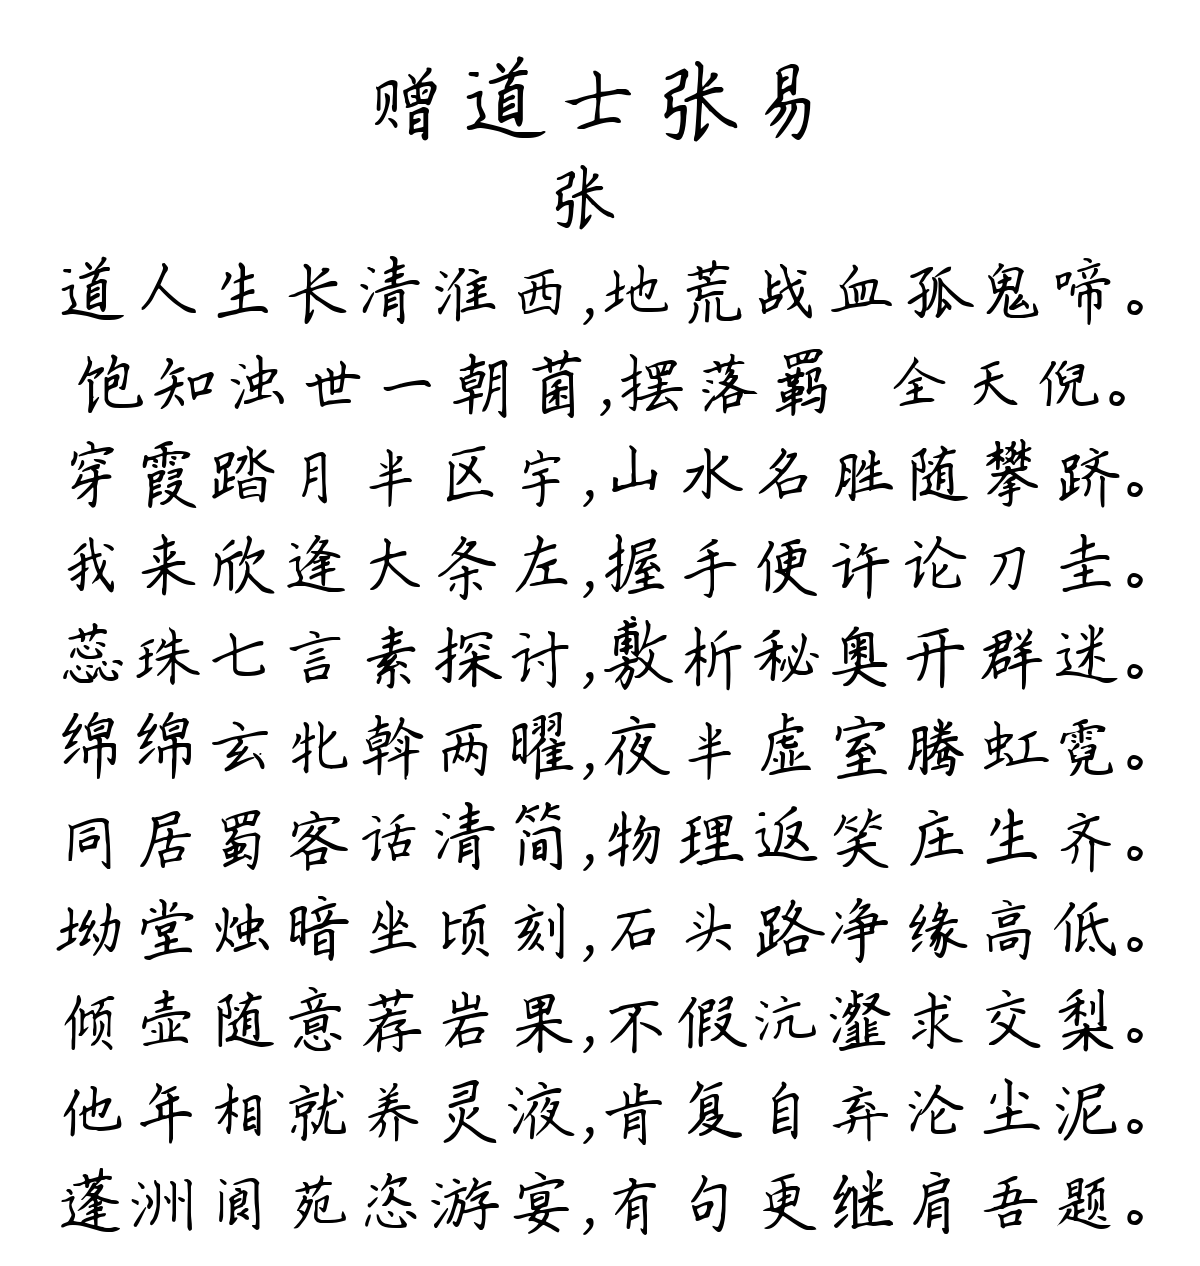 赠道士张易
张
道人生长清淮西,地荒战血孤鬼啼。
饱知浊世一朝菌,摆落羁 全天倪。
穿霞踏月半区宇,山水名胜随攀跻。
我来欣逢大条左,握手便许论刀圭。
蕊珠七言素探讨,敷析秘奥开群迷。
绵绵玄牝斡两曜,夜半虚室腾虹霓。
同居蜀客话清简,物理返笑庄生齐。
坳堂烛暗坐顷刻,石头路净缘高低。
倾壶随意荐岩果,不假沆瀣求交梨。
他年相就养灵液,肯复自弃沦尘泥。
蓬洲阆苑恣游宴,有句更继肩吾题。